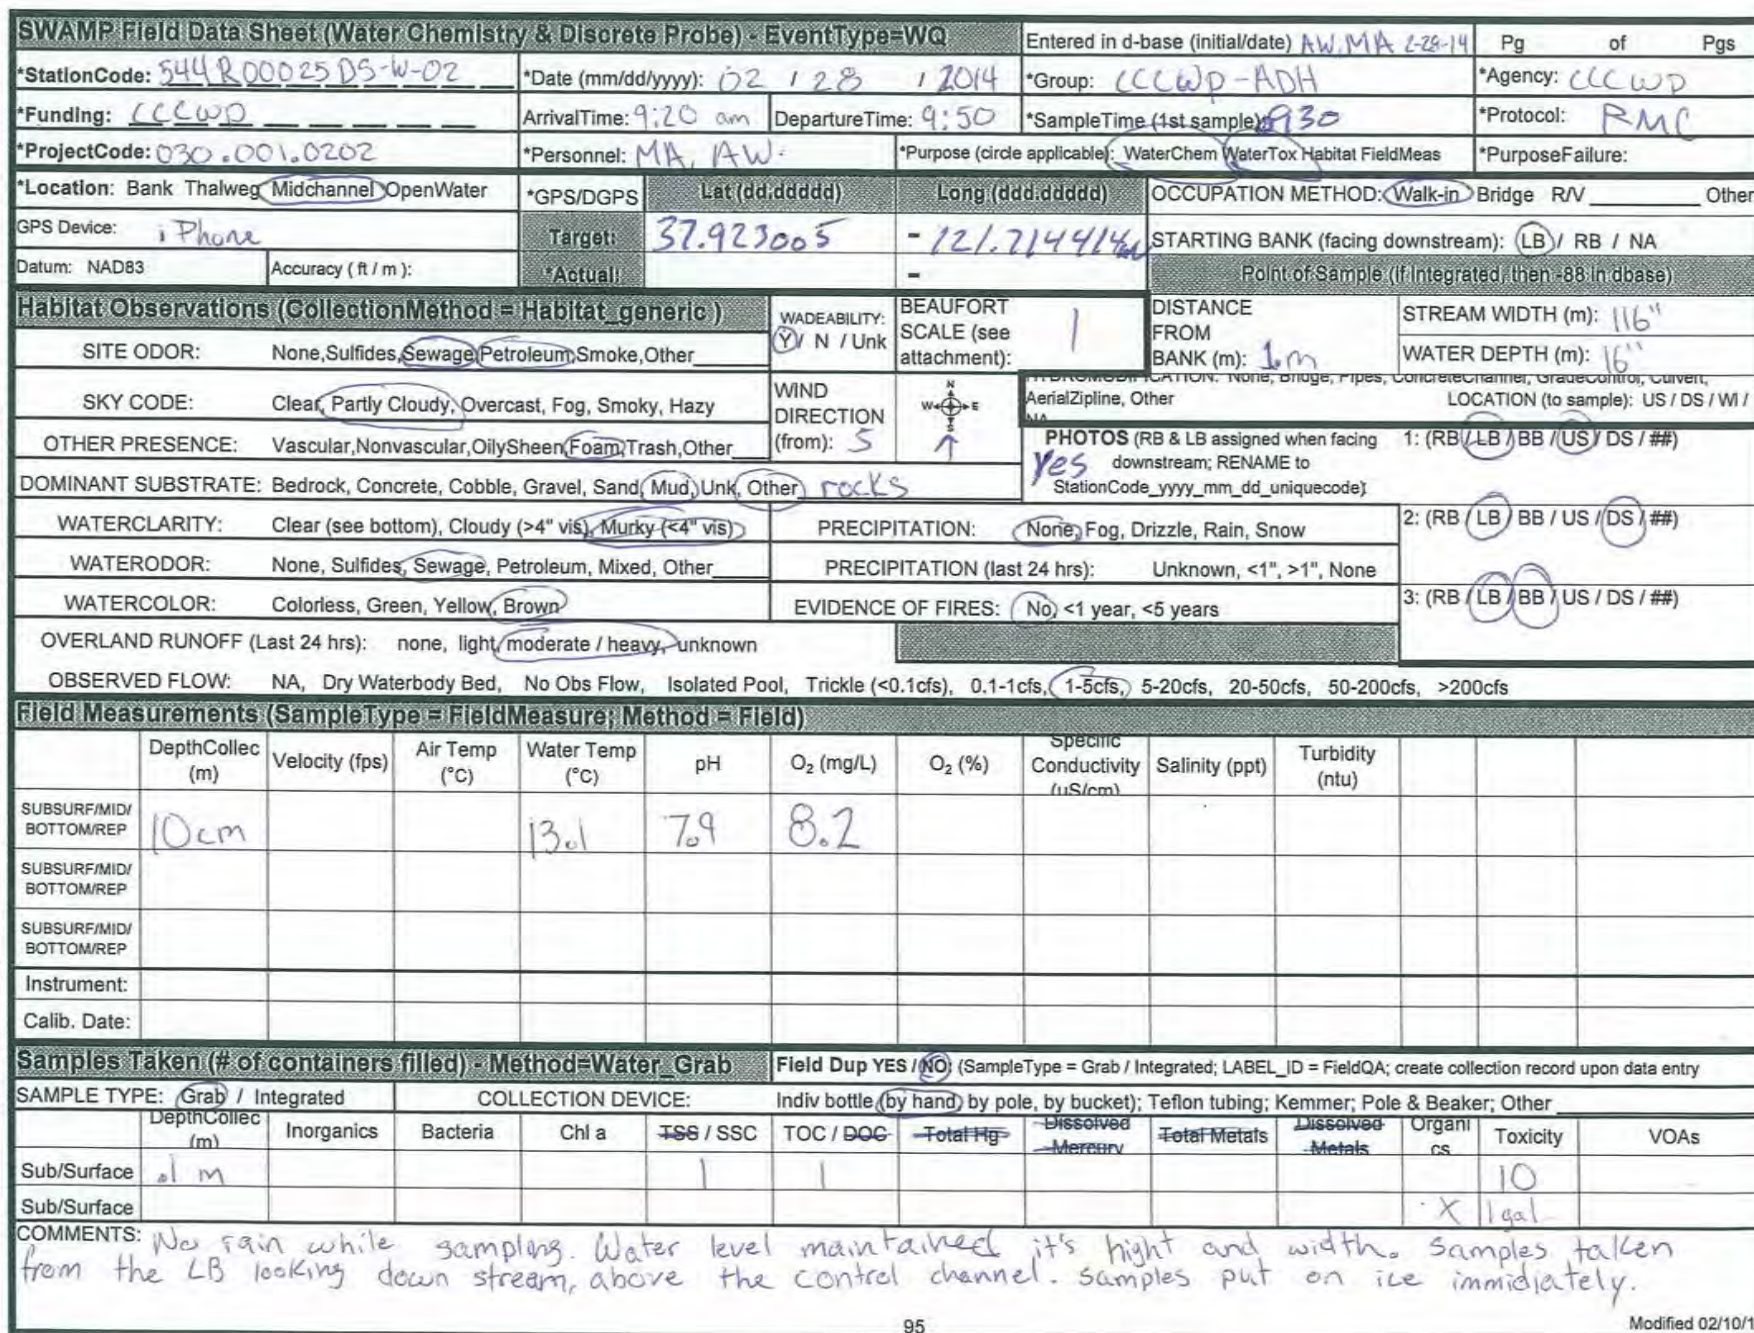 SWAMP Field Data Sheet (Water Chemistry & Discrete Probe) - EventType=WQ Entered in d-base (initial/date) AW, MA 2-28-14 Pg of Pgs
*StationCode: 544R00025DS-W-02 *Date (mm/dd/yyyy): 02 / 28 / 2014 *Group: CCCWP-ADH *Agency: CCCWP
*Funding: CCCWP ArrivalTime: 9:20 am DepartureTime: 9:50 *SampleTime (1st sample): 0930 *Protocol: RMC
*ProjectCode: 030.001.0202 *Personnel: MA, AW. *Purpose (circle applicable): WaterChem WaterTox Habitat FieldMeas *PurposeFailure:
*Location: Bank Thalweg Midchannel OpenWater *GPS/DGPS Lat (dd.ddddd) Long (ddd.ddddd) OCCUPATION METHOD: Walk-in Bridge R/V Other
GPS Device: iPhone Target: 37.923005 -121.714414 STARTING BANK (facing downstream): LB / RB / NA
Datum: NAD83 Accuracy ( ft / m ): *Actual: - Point of Sample (if Integrated, then -88 in dbase)
Habitat Observations (CollectionMethod = Habitat_generic ) WADEABILITY: Y / N / Unk BEAUFORT SCALE (see attachment): 1 DISTANCE FROM BANK (m): 1 m STREAM WIDTH (m): 116"
SITE ODOR: None,Sulfides,Sewage,Petroleum,Smoke,Other WATER DEPTH (m): 16"
SKY CODE: Clear, Partly Cloudy, Overcast, Fog, Smoky, Hazy WIND DIRECTION (from): S N W E S HYDROMODIFICATION: None, Bridge, Pipes, ConcreteChannel, GradeControl, Culvert,
AerialZipline, Other LOCATION (to sample): US / DS / WI /
NA
OTHER PRESENCE: Vascular,Nonvascular,OilySheen,Foam,Trash,Other PHOTOS (RB & LB assigned when facing downstream; RENAME to StationCode_yyyy_mm_dd_uniquecode) Yes 1: (RB / LB / BB / US / DS / ##)
DOMINANT SUBSTRATE: Bedrock, Concrete, Cobble, Gravel, Sand, Mud, Unk, Other rocks
WATERCLARITY: Clear (see bottom), Cloudy (>4" vis), Murky (<4" vis) PRECIPITATION: None, Fog, Drizzle, Rain, Snow 2: (RB / LB / BB / US / DS / ##)
WATERODOR: None, Sulfides, Sewage, Petroleum, Mixed, Other PRECIPITATION (last 24 hrs): Unknown, <1", >1", None
WATERCOLOR: Colorless, Green, Yellow, Brown EVIDENCE OF FIRES: No, <1 year, <5 years 3: (RB / LB / BB / US / DS / ##)
OVERLAND RUNOFF (Last 24 hrs): none, light, moderate / heavy, unknown
OBSERVED FLOW: NA, Dry Waterbody Bed, No Obs Flow, Isolated Pool, Trickle (<0.1cfs), 0.1-1cfs, 1-5cfs, 5-20cfs, 20-50cfs, 50-200cfs, >200cfs
Field Measurements (SampleType = FieldMeasure; Method = Field)
DepthCollec (m) Velocity (fps) Air Temp (°C) Water Temp (°C) pH O₂ (mg/L) O₂ (%) Specific Conductivity (uS/cm) Salinity (ppt) Turbidity (ntu)
SUBSURF/MID/ BOTTOM/REP 10cm 13.1 7.9 8.2
SUBSURF/MID/ BOTTOM/REP
SUBSURF/MID/ BOTTOM/REP
Instrument:
Calib. Date:
Samples Taken (# of containers filled) - Method=Water_Grab Field Dup YES / NO: (SampleType = Grab / Integrated; LABEL_ID = FieldQA; create collection record upon data entry
SAMPLE TYPE: Grab / Integrated COLLECTION DEVICE: Indiv bottle (by hand, by pole, by bucket); Teflon tubing; Kemmer; Pole & Beaker; Other
DepthCollec (m) Inorganics Bacteria Chl a TSS / SSC TOC / DOC Total Hg Dissolved Mercury Total Metals Dissolved Metals Organi cs Toxicity VOAs
Sub/Surface .1 m 1 1 10
Sub/Surface X 1gal
COMMENTS: No rain while sampling. Water level maintained it's hight and width. Samples taken
from the LB looking down stream, above the control channel. samples put on ice immidiately.
95
Modified 02/10/1